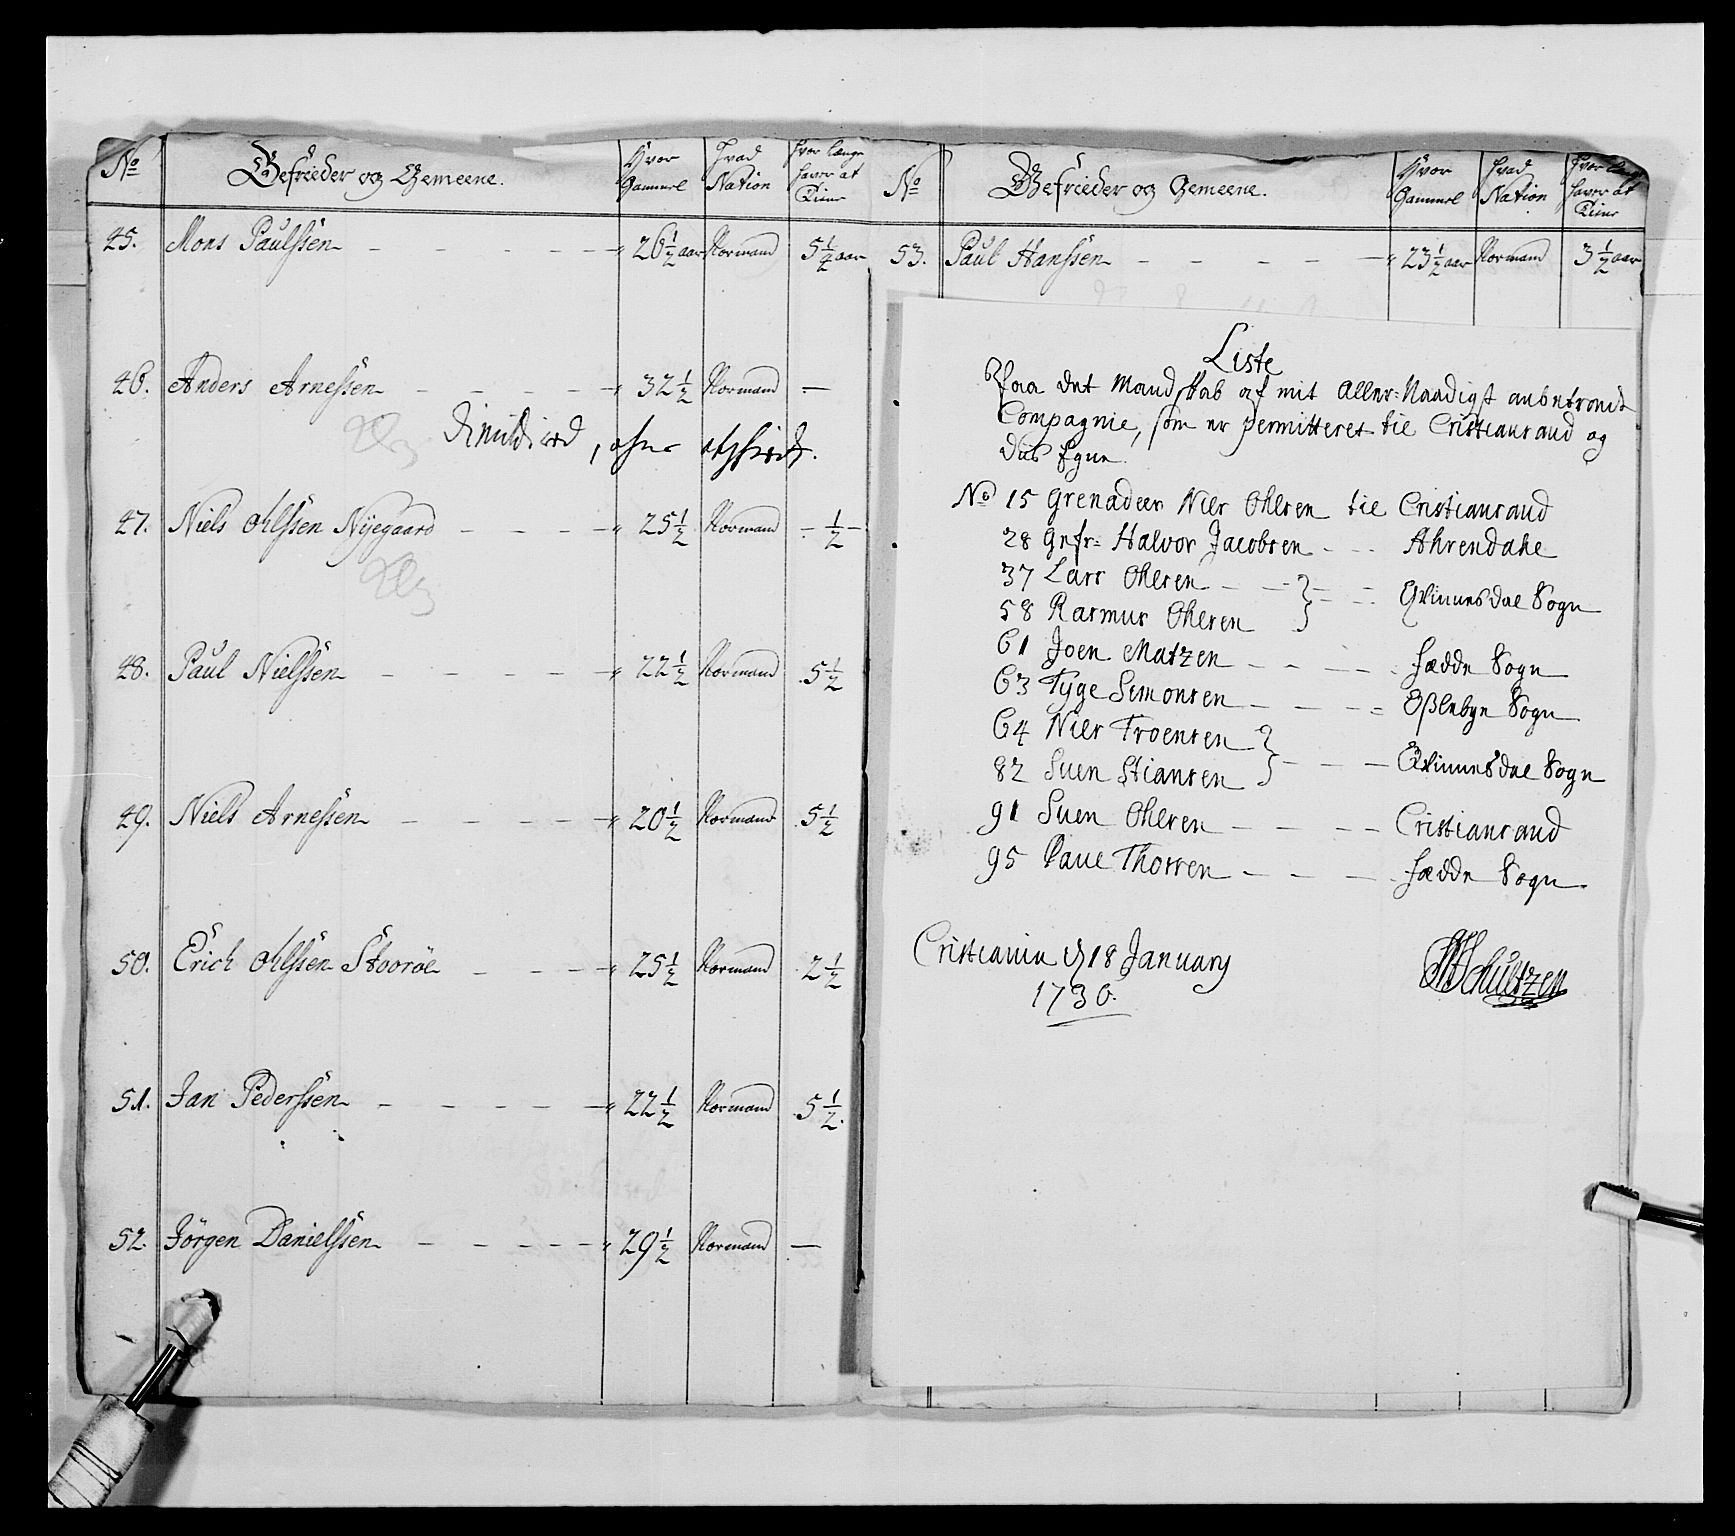 No Gefreeder og Gemeene. Hvor Gammel Hvad Nation Hvor længe haver at Tiene
45. Mons Paulssen 26 1/2 aar Normand 5 1/2 aar
46. Anders Arnessen 32 1/2 Normand —
dimitired, ohne abschiedt.
47. Niels Ohlssen Nijegaard 25 1/2 Normand - 1/2 -
48. Paul Nielssen 22 1/2 Normand 5 1/2
49. Niels Arnessen 20 1/2 Normand 5 1/2
50. Erich Ohlssen Stooröe 25 1/2 Normand 2 1/2
51. Jan Pederssen 22 1/2 Normand 5 1/2.
52. Jörgen Danielssen 29 1/2 Normand —
No Gefreeder og Gemeene. Hvor Gammel Hvad Nation Hvor længe haver at Tiene
53. Paul Hanssen 23 1/2 aar Normand 3 1/2 aar
Liste
Paa det Mandskab af mit Aller-Naadigst anbetroude
Compagnie, som er permitteret til Cristiansand og
dens Egne
No 15 Grenadeer Niels Ohlsen til Cristiansand
28 Gefr: Halvor Jacobsen - - Ahrendahl
37 Lars Ohlsen
58 Rasmus Ohlsen } - - Qvinnesdal Sogn
61 Joen Matzen - - - - Fædde Sogn
63 Tyge Simonsen - - - - Sogn
64 Niels Troensen
82 Suen Stiansen } - - - Qvinnesdal Sogn
91 Suen Ohlsen - - - - Cristiansand
95 Paul Thorsen - - - Fædde Sogn
Cristiania d 18 January
1730.
Schultzen